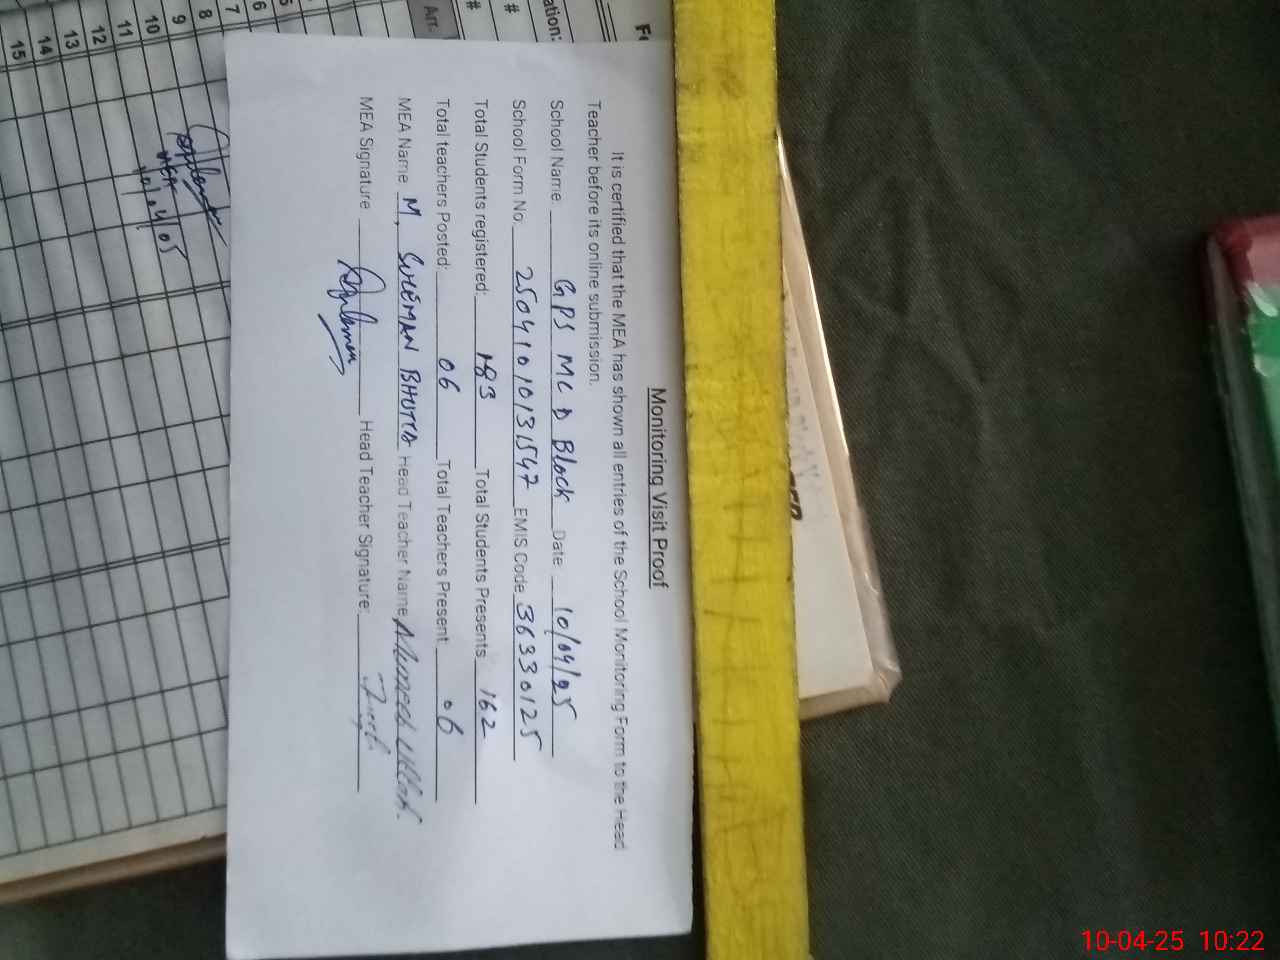 Monitoring Visit Proof
It is certified that the MEA has shown all entries of the School Monitoring Form to the Head
Teacher before its online submission.
School Name: GPS MC D Block Date 10/04/25
School Form No. 25041010131547 EMIS Code 36330125
Total Students registered: 183 Total Students Presents 162
Total teachers Posted: 06 Total Teachers Present: 06
MEA Name M. SULEMAN BHUTTA Head Teacher Name
MEA Signature Head Teacher Signature:
ation:
#
#
Arr.
5
6
7
8
9
10
11
12
13
14
15
MEA
10-04-25 10:22